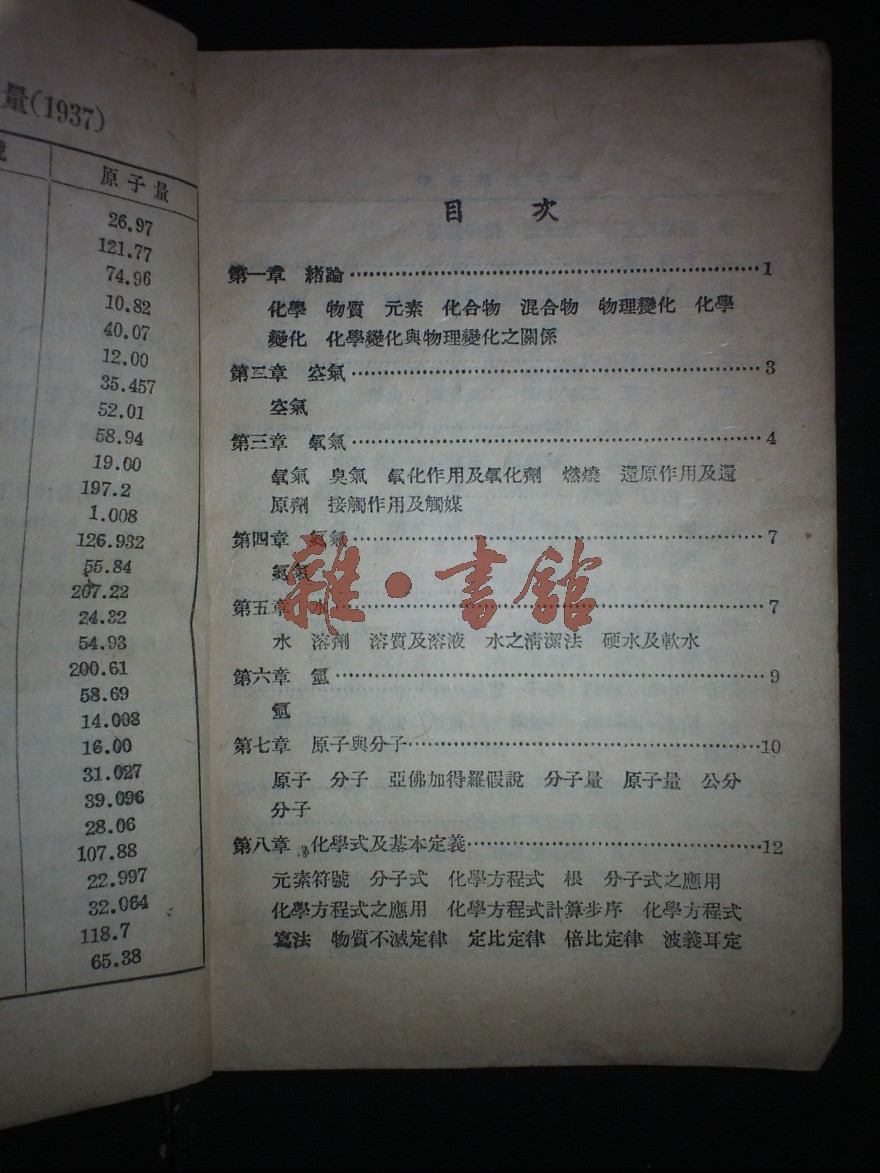 量(1937)
號
原子量
26.97
121.77
74.96
10.82
40.07
12.00
35.457
52.01
58.94
19.00
197.2
1.008
126.932
55.84
207.22
24.32
54.93
200.61
58.69
14.008
16.00
31.027
39.096
28.06
107.88
22.997
32.064
118.7
65.38
目次
第一章 緒論 1
化學 物質 元素 化合物 混合物 物理變化 化學
變化 化學變化與物理變化之關係
第三章 空氣 3
空氣
第三章 氧氣 4
氧氣 臭氣 氧化作用及氧化劑 燃燒 還原作用及還
原劑 接觸作用及觸媒
第四章 氮氣 7
氮氣
雜·書館
第五章 水 7
水 溶劑 溶質及溶液 水之清潔法 硬水及軟水
第六章 氫 9
氫
第七章 原子與分子 10
原子 分子 亞佛加得羅假說 分子量 原子量 公分
分子
第八章 化學式及基本定義 12
元素符號 分子式 化學方程式 根 分子式之應用
化學方程式之應用 化學方程式計算步序 化學方程式
寫法 物質不滅定律 定比定律 倍比定律 波義耳定